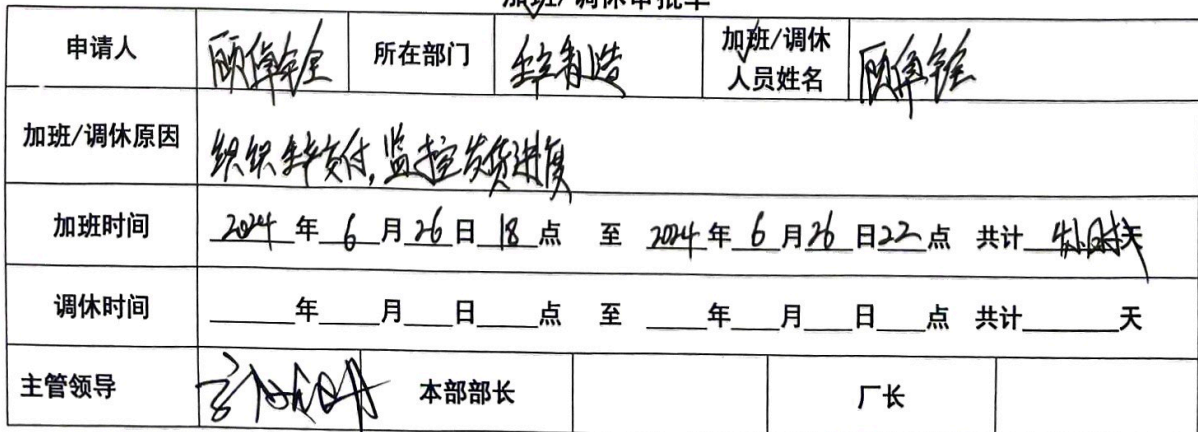 加班/调休审批单
申请人 顾伟铨 所在部门 整车制造 加班/调休人员姓名 顾伟铨
加班/调休原因 组织整车交付,监控发货进度
加班时间 2024年6月26日18点 至 2024年6月26日22点 共计4小时天
调休时间 ____年____月____日____点 至 ____年____月____日____点 共计____天
主管领导 本部部长 厂长